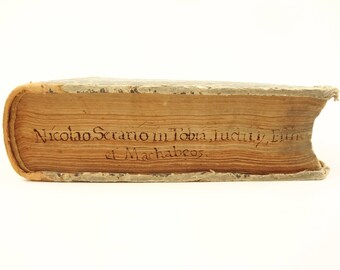 Nicolao Serario in Tobia, Iudith,
et Machabeos.